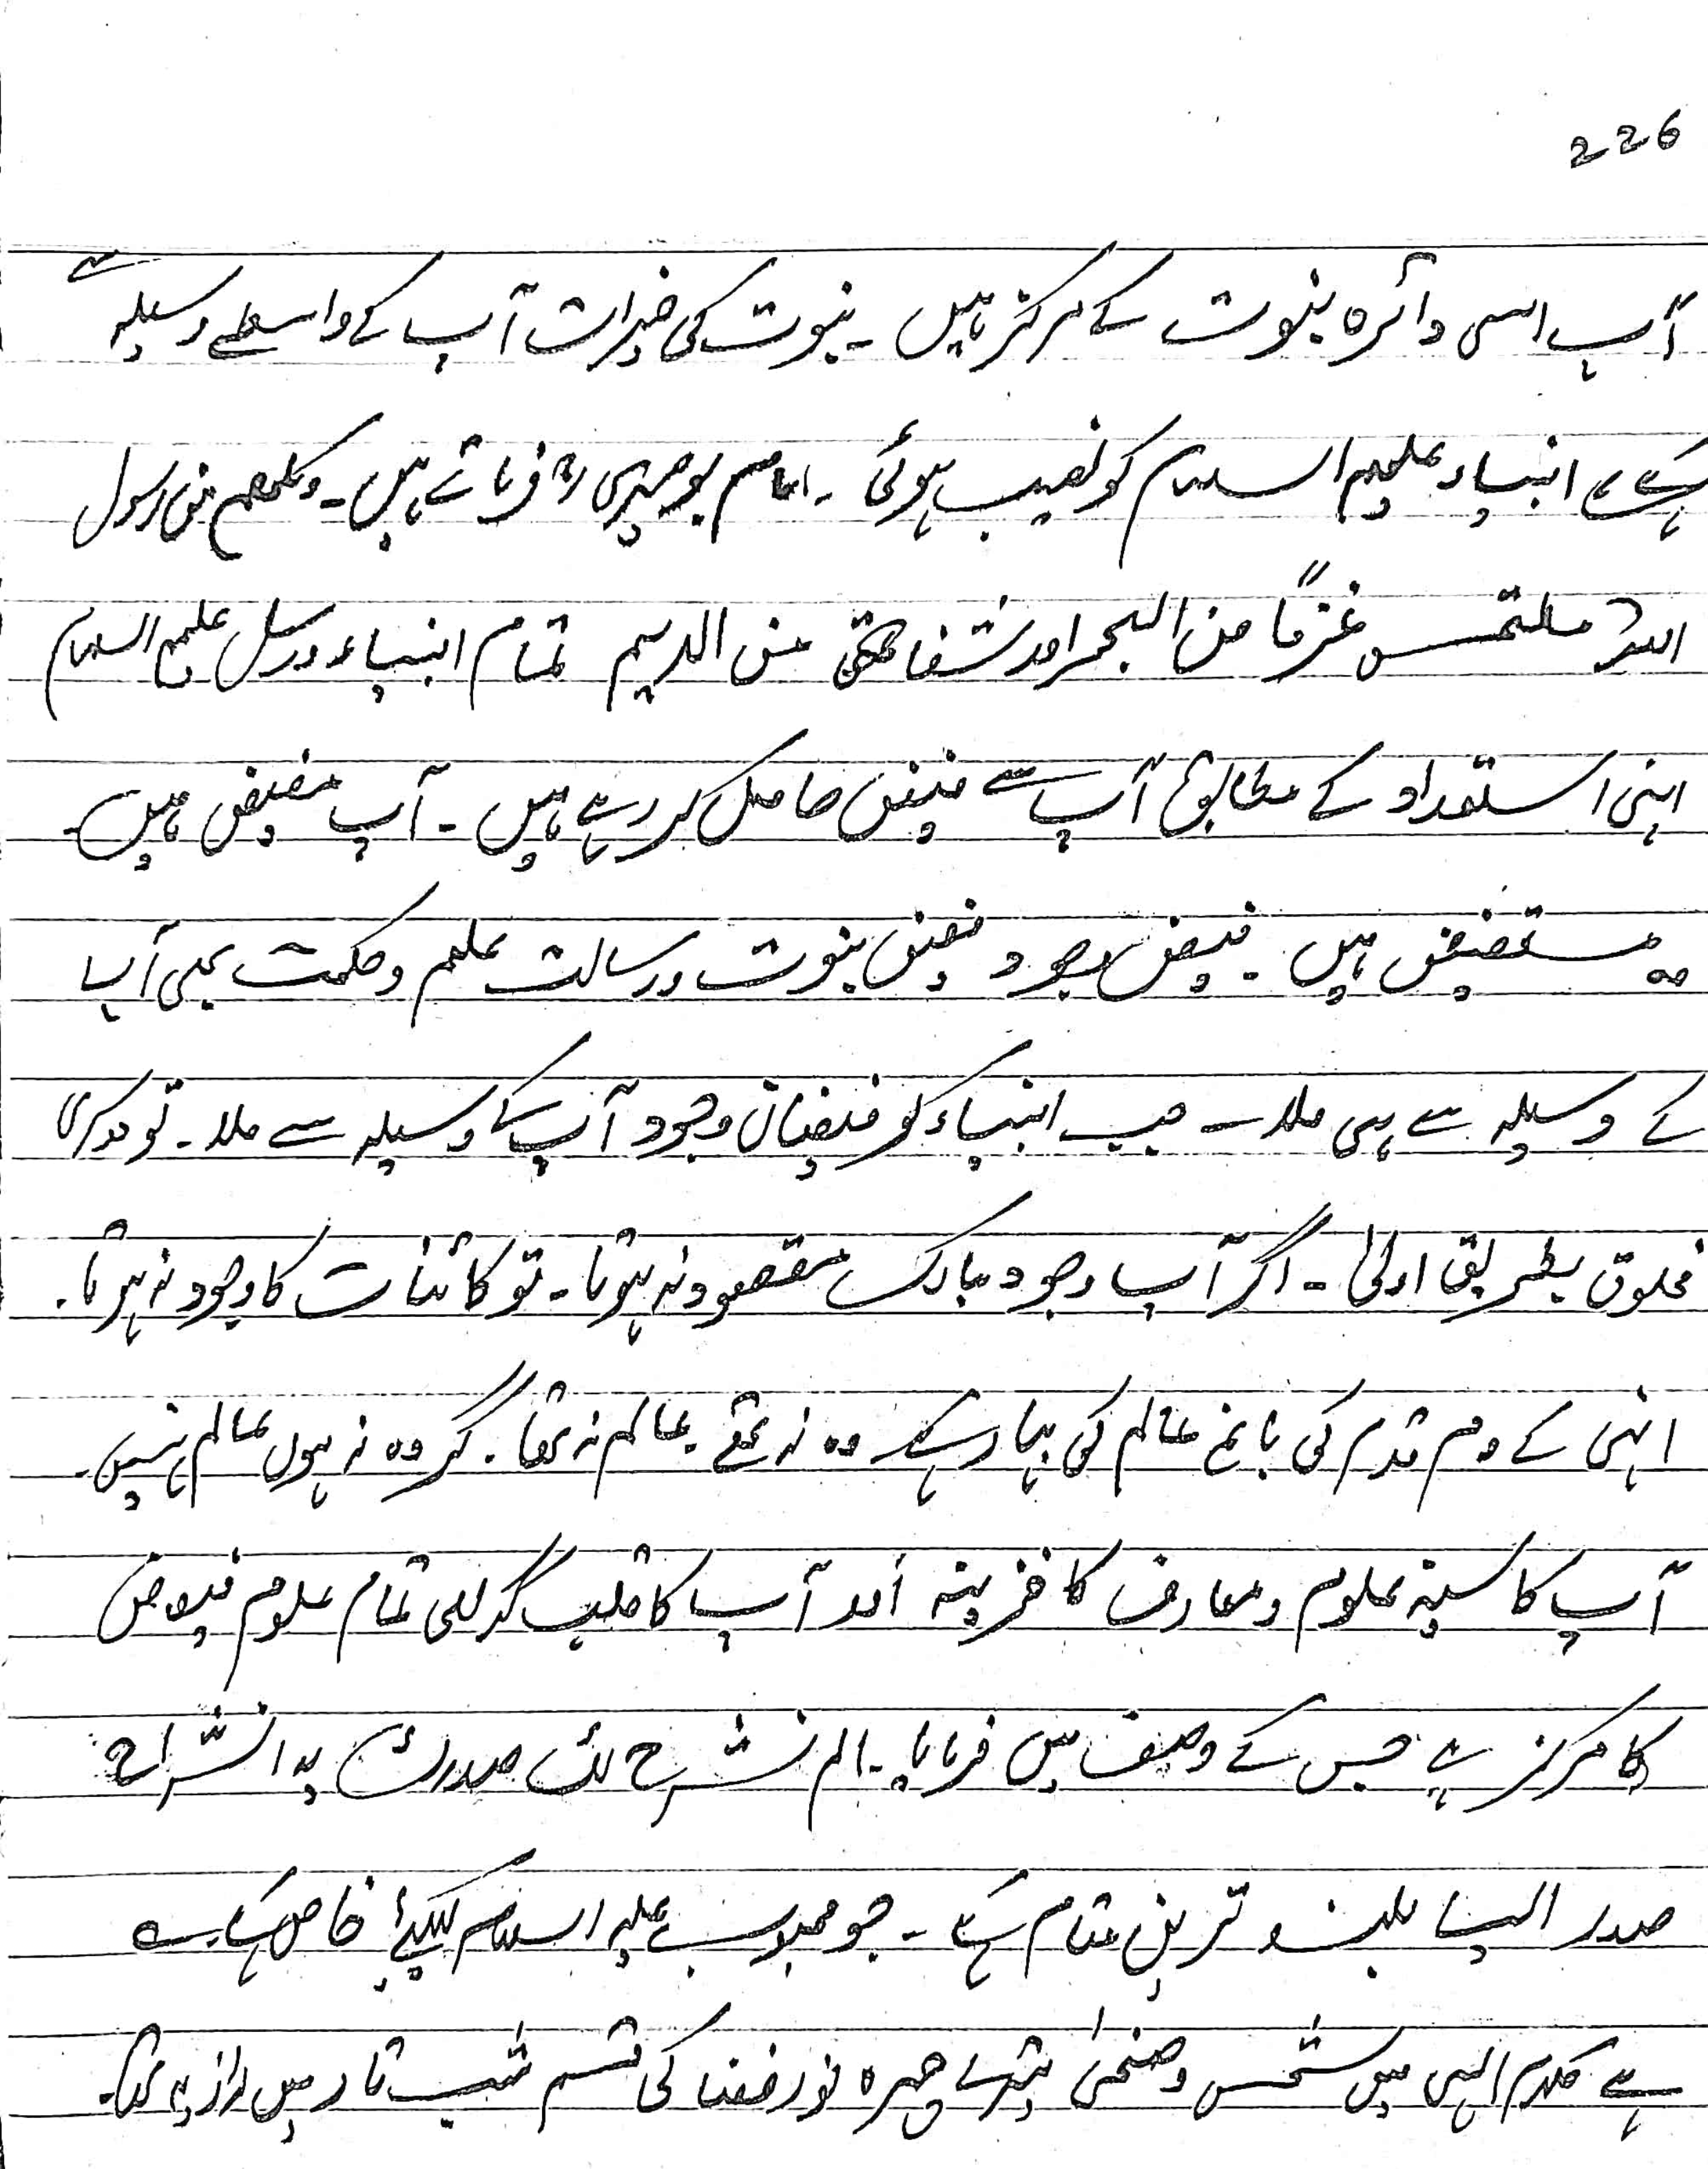 226
آپ اسی دائرہ نبوت کے مرکز ہیں ۔ نبوت کی خیرات آپ کے واسطے وسیلہ سے
ہی انبیاء علیہم السلام کو نصیب ہوئی ۔ امام بوصیری رح فرماتے ہیں ۔ وکلھم من رسول
اللہ ملتمس غرفًا من البحر او رشفا من الدیم تمام انبیاء ورسل علیہم السلام
اپنی استعداد کے مطابق آپ سے فیض حاصل کر رہے ہیں ۔ آپ مفیض ہیں ۔
وہ مستفیض ہیں ۔ فیض وجود فیض نبوت ورسالت علم وحکمت بھی آپ
کے وسیلہ سے ہی ملا ۔ جب انبیاء کو فیضان وجود آپ کے وسیلہ سے ملا ۔ تو دوسری
مخلوق بطریق اولیٰ ۔ اگر آپ وجود مبارک مقصود نہ ہوتا ۔ تو کائنات کا وجود نہ ہوتا ۔
انہی کے دم قدم کی باغ عالم کی بہار ہے وہ نہ تھے عالم نہ تھا ۔ گر وہ نہ ہوں عالم نہیں ۔
آپ کا سینہ علوم ومعارف کا خزینہ اور آپ کا قلب تمام علوم فیوض
کا مرکز ہے جس کے وصف میں فرمایا ۔ الم نشرح لک صدرک یہ انشراح
صدر ایسا بلند ترین مقام ہے ۔ جو محبوب علیہ السلام کیلئے خاص ہے ۔
ہے کلام الہی میں شمس وضحیٰ تیرے چہرہ نور فضا کی قسم شب تار میں راز یہ تھا ۔